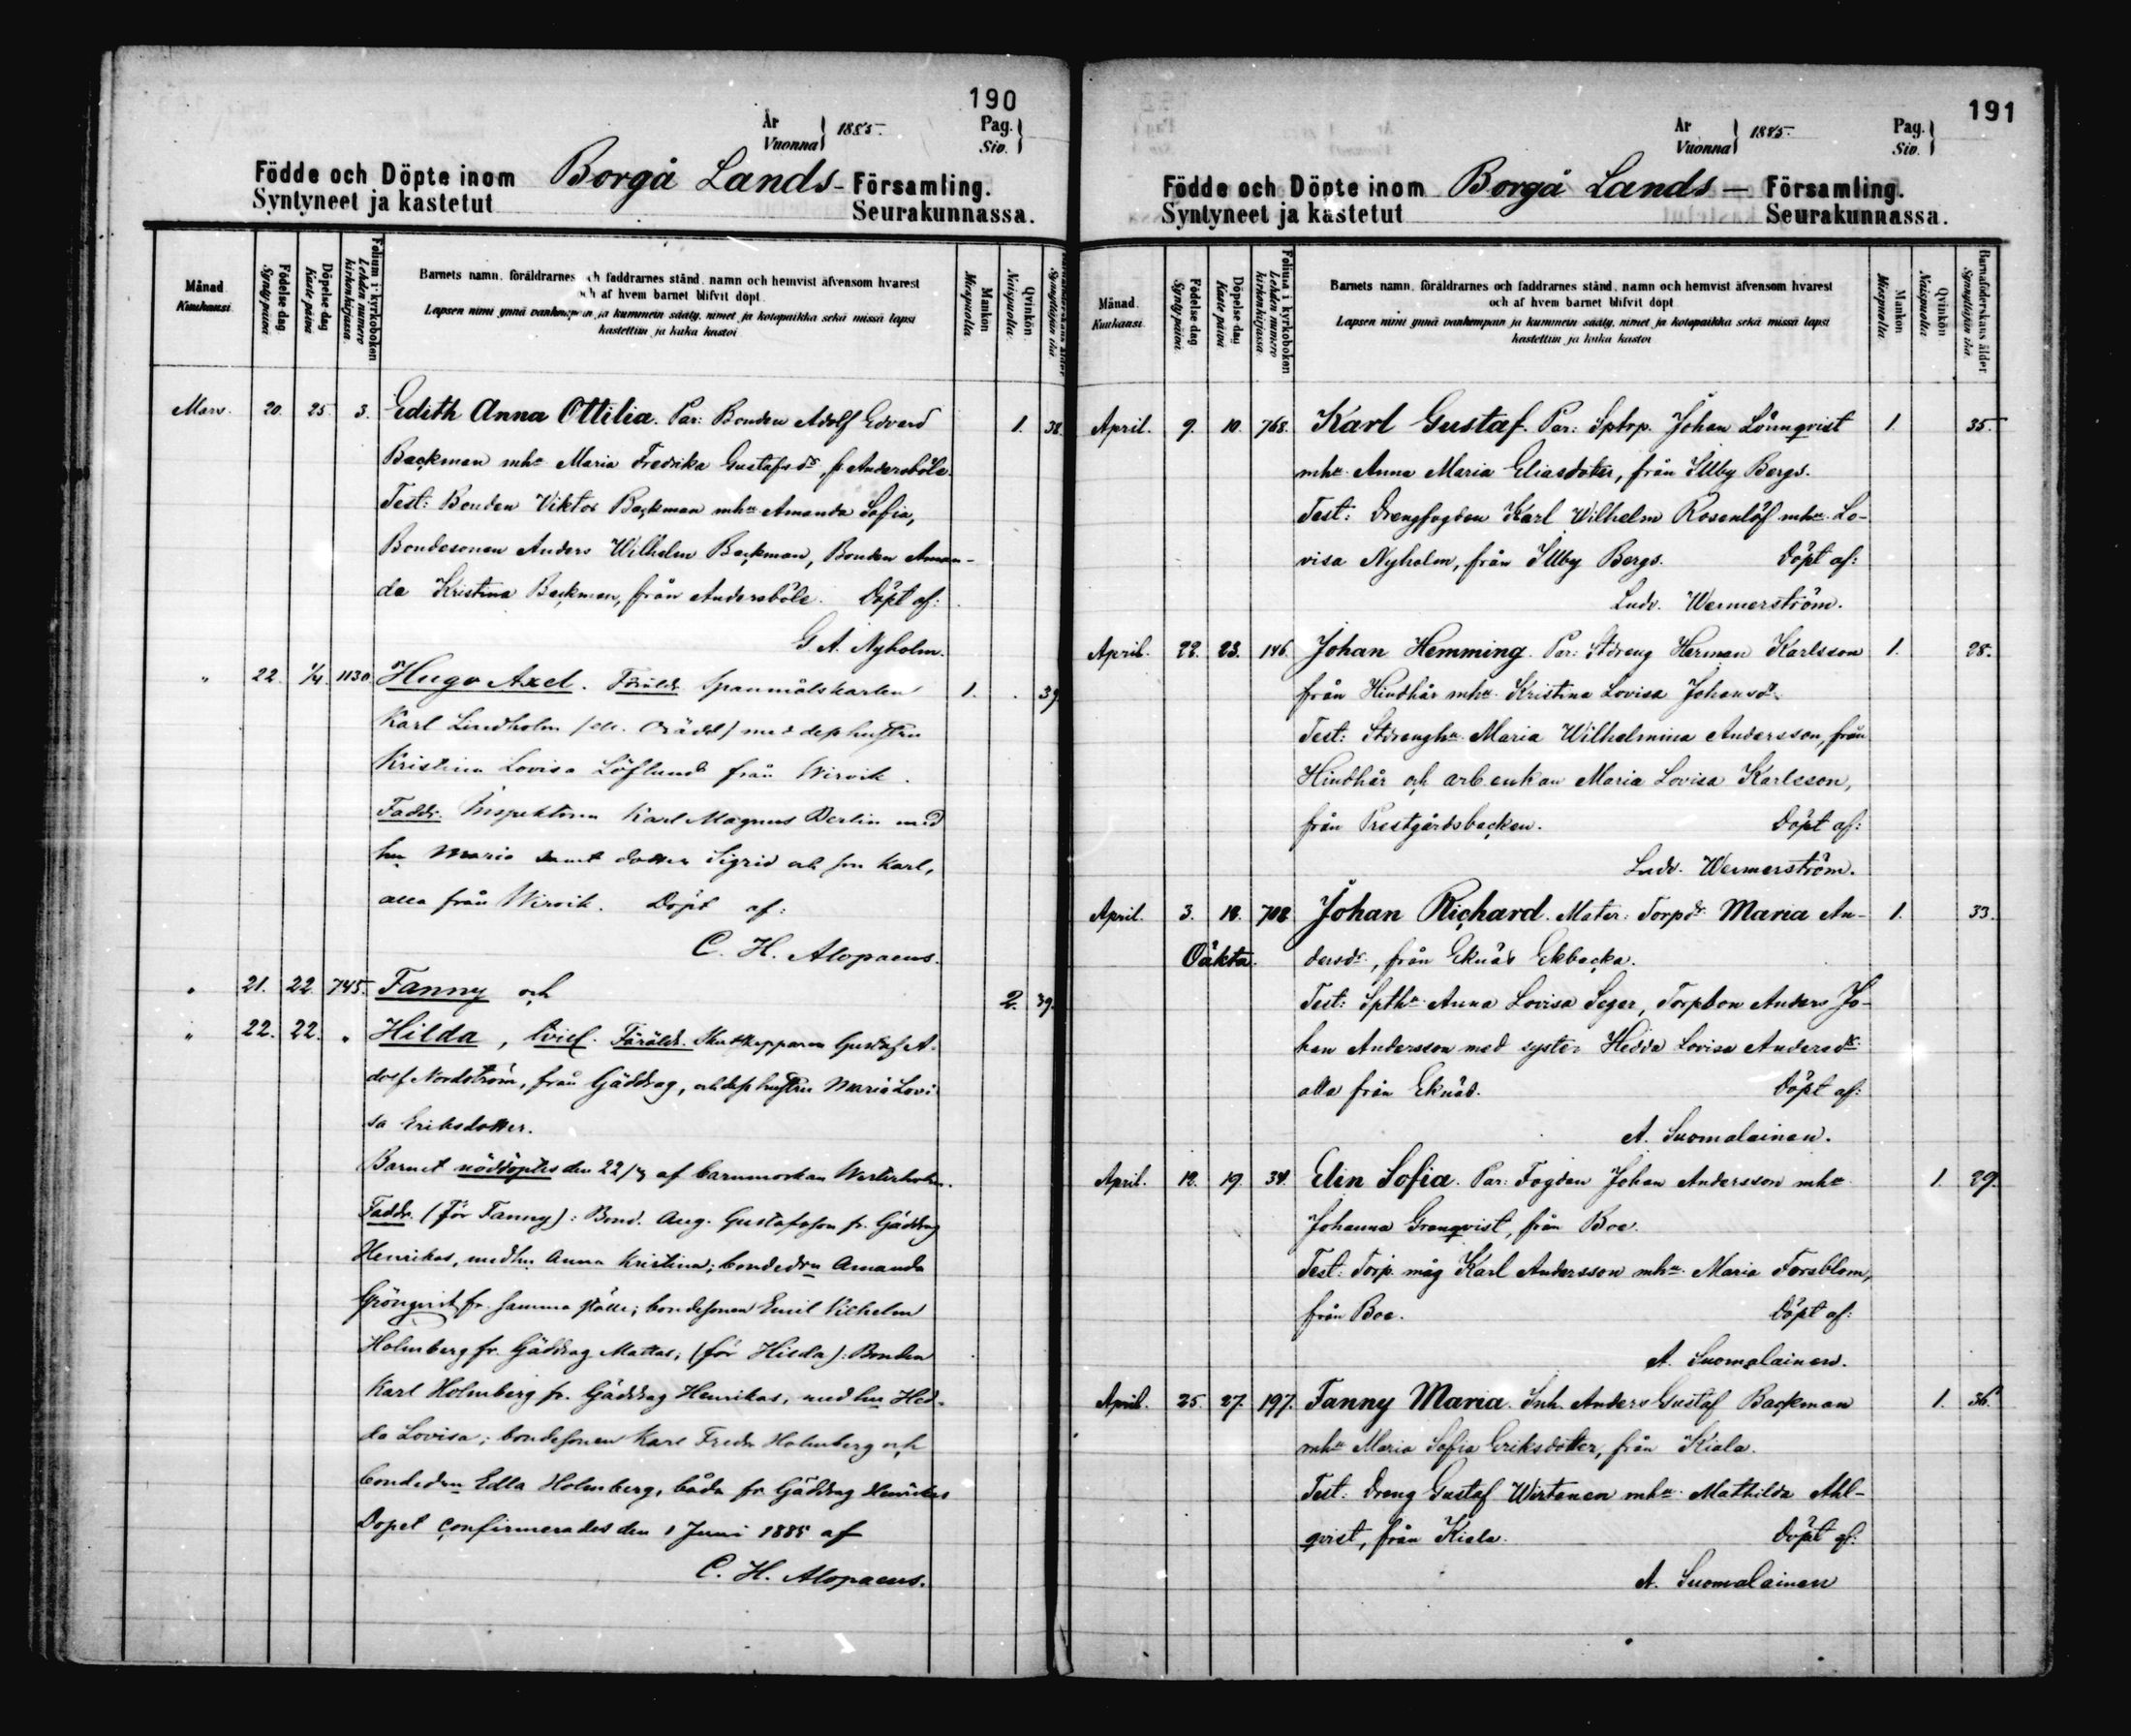 190
År
Vuonna 1885.
Pag.
Siv.
Födde och Döpte inom Borgå Lands- Församling.
Syntyneet ja kastetut Seurakunnassa.
Månad
Kuukausi.
Födelse dag
Synty päivä
Döpelse dag
Kaste päivä
Folium i kyrkoboken
Lehden numero kirkonkirjassa.
Barnets namn, föräldrarnes och faddrarnes stånd, namn och hemvist äfvensom hvarest
och af hvem barnet blifvit döpt.
Lapsen nimi ynnä vanhempain ja kummein sääty, nimet ja kotopaikka sekä missä lapsi
kastettiin ja kuka kastoi
Mankön
Miespuolta.
Qvinkön.
Naispuolta.
Mars. 20. 25. 3. Edith Anna Ottilia. Par: Bonden Adolf Edvard 1. 38.
Backman mhu Maria Fredrika Gustafsdr, fr Andersböle.
Test: Bonden Viktor Backman mhu Amanda Sofia,
Bondesonen Anders Wilhelm Backman, Bonden Aman-
da Kristina Backman, från Andersböle. Döpt af:
G. A. Nyholm.
" 22. 1/4. 1130. Hugo Axel. Föräldr. Spannmålskarlen 1. 39.
Karl Lindholm med dess hustru
Kristina Lovisa Löflund från Wirvik.
Faddr. Inspektoren Karl Magnus Berlin med
hu Maria samt dotter Sigrid och son Karl,
alla från Wirvik. Döpt af:
C. H. Alopaeus.
" 21. 22. 745. Fanny och 2. 39.
" 22. 22. " Hilda, tvill. Föräldr. Skutskepparen Gustaf A-
dolf Nordström, från Gäddrag, och dess hustru Maria Lovi-
sa Eriksdotter.
Barnet nöddöptes den 22/3 af barnmorskan Westerholm.
Faddr. (för Fanny): Bond. Aug. Gustafsson fr. Gäddrag
Henrikas, med hu Anna Kristina; bondedrn Amanda
Grönqvist fr. samma ställe; bondesonen Emil Vilhelm
Holmberg fr. Gäddrag Mattas; (för Hilda): Bonden
Karl Holmberg fr. Gäddrag Henrikas, med hu Hed-
da Lovisa; bondesonen Karl Fredr. Holmberg och
bondedrn Edla Holmberg, båda fr. Gäddrag Henrikas
Dopet confirmerades den 1 Juni 1885 af
C. H. Alopaeus.
191
År
Vuonna 1885.
Pag.
Siv.
Födde och Döpte inom Borgå Lands — Församling.
Syntyneet ja kastetut Seurakunnassa.
Månad.
Kuukausi.
Födelse dag
Synty päivä.
Döpelse dag
Kaste päivä
Folium i kyrkoboken
Lehden numero kirkonkirjassa.
Barnets namn, föräldrarnes och faddrarnes stånd, namn och hemvist äfvensom hvarest
och af hvem barnet blifvit döpt.
Lapsen nimi ynnä vanhempain ja kummein sääty, nimet ja kotopaikka sekä missä lapsi
kastettiin ja kuka kastoi
Mankön
Miespuolta.
Qvinkön
Naispuolta
Barnaföderskans ålder.
Synnyttäjän ikä.
April. 9. 10. 768. Karl Gustaf. Par: Sptrp. Johan Lönnqvist 1. 35.
mhu Anna Maria Eliasdotter, från Illby Bergs.
Test: Drengfogden Karl Wilhelm Rosenlöf mhu Lo-
visa Nyholm, från Illby Bergs. Döpt af:
Ludv. Wennerström.
April. 22. 23. 146. Johan Hemming. Par: Stdreng Herman Karlsson 1. 28.
från Hindhår mhu Kristina Lovisa Johansdr.
Test: Stdrenghu Maria Wilhelmina Andersson, från
Hindhår och arb.enkan Maria Lovisa Karlsson,
från Prestgårdsbacken. Döpt af:
Ludv. Wennerström.
April. 3. 18. 708. Johan Richard. Mater: Torpdr Maria An- 1. 33.
Oäkta. dersdr, från Eknäs Ekbacka.
Test: Spthu Anna Lovisa Seger, Torpson Anders Jo-
han Andersson med syster Hedda Lovisa Andersdr
alla från Eknäs. Döpt af:
A. Suomalainen.
April. 12. 19. 34. Elin Sofia. Par: Fogden Johan Andersson mhu 1. 29.
Johanna Granqvist, från Boe.
Test: Torp. måg Karl Andersson mhu Maria Forsblom,
från Boe. Döpt af:
A. Suomalainen.
April. 25. 27. 197. Fanny Maria. Inh. Anders Gustaf Backman 1. 36.
mhu Maria Sofia Eriksdotter, från Kiala.
Test: Dreng Gustaf Wirtenen mhu Mathilda Ahl-
qvist, från Kiala. Döpt af:
A. Suomalainen